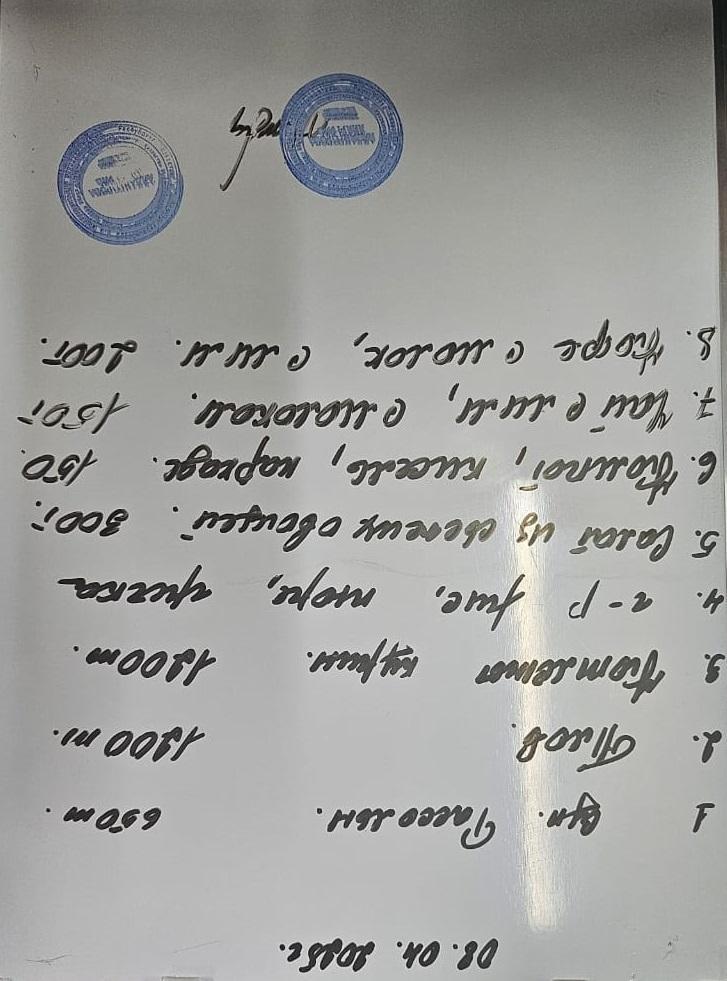 08.04.2025г.
1 суп. Рассольн. 650 т.
2. Плов. 1200 т.
3. Котлеты курин. 1200 т.
4. г-р рис, пюре, гречка
5. Салат из свежих овощей. 300т.
6. Компот, кисель, каркаде. 150.
7. Чай с лим, с молоком. 150т
8. Кофе с молок, с лим. 200т.